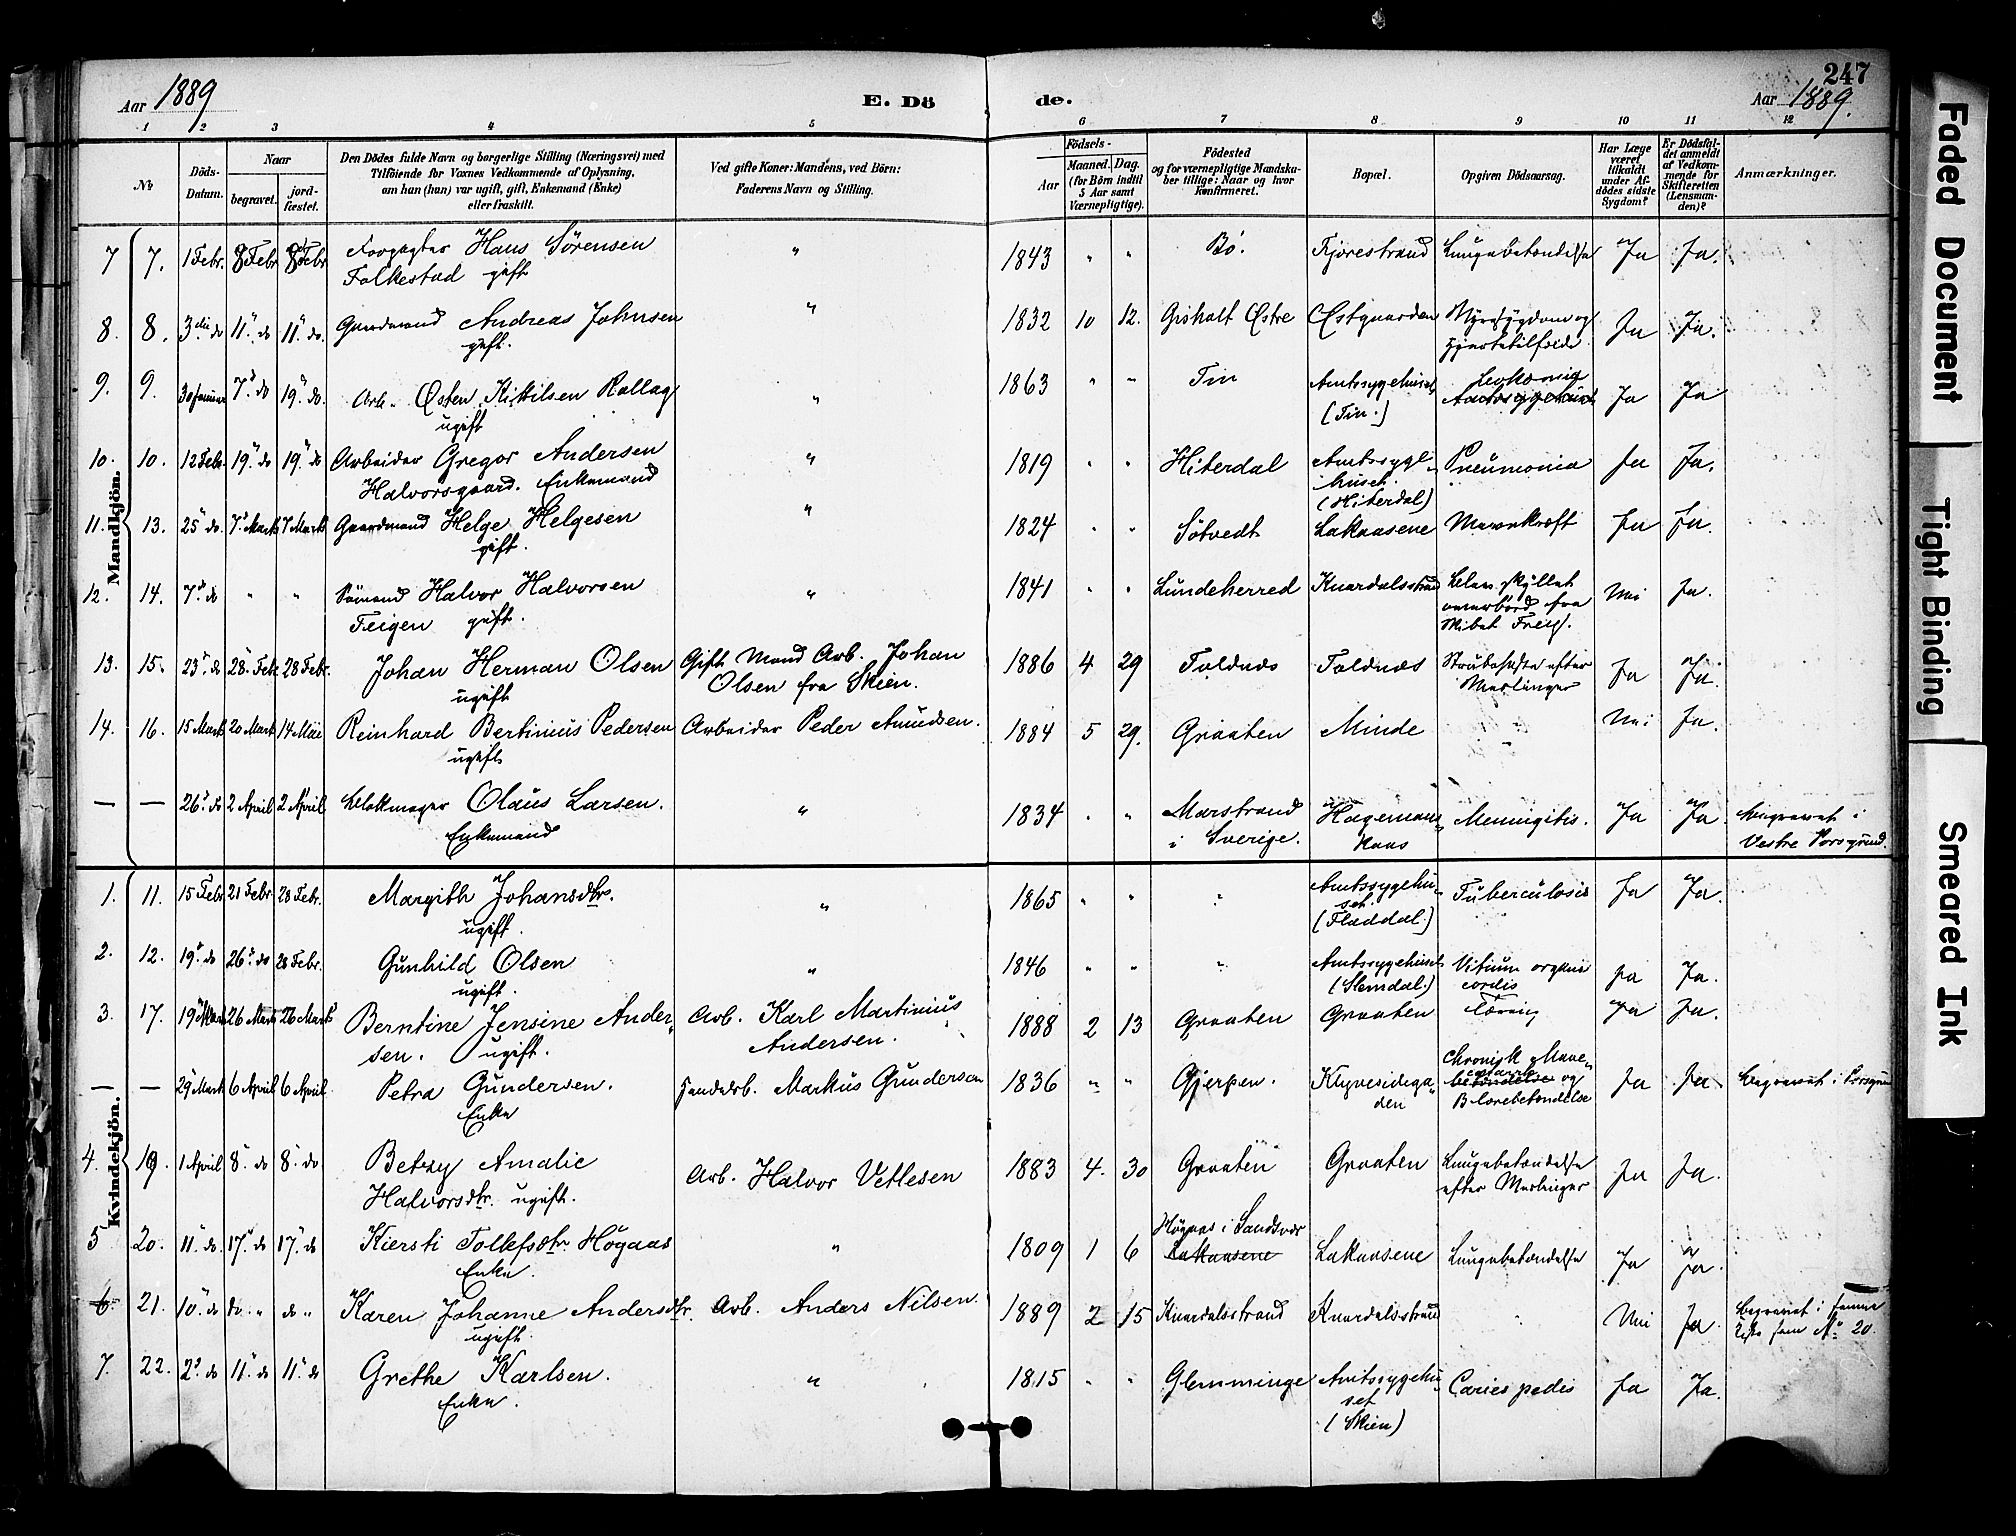 247
Aar 1889 E. Dö de. Aar 1889.
1 2 3 4 5 6 7 8 9 10 11 12
No
Döds-Datum.
Naar
begravet.
jord-fæstet.
Den Dödes fulde Navn og borgerlige Stilling (Næringsvei) med
Tilföiende for Voxnes Vedkommende af Oplysning,
om han (hun) var ugift, gift, Enkemand (Enke)
eller fraskilt.
Ved gifte Koner: Mandens, ved Börn:
Faderens Navn og Stilling.
Födsels-
Aar
Maaned. Dag.
(for Börn indtil
5 Aar samt
Værnepligtige).
Födested
og for værnepligtige Mandska-
ber tillige: Naar og hvor
konfirmeret.
Bopæl.
Opgiven Dödsaarsag.
Har Læge
været
tilkaldt
under Af-
dödes sidste
Sygdom?
Er Dödsfal-
det anmeldt
af Vedkom-
mende for
Skifteretten
(Lensman-
den)?
Anmærkninger.
Mandkjön.
7 7. 1 Febr. 8 Febr 8 Febr Forpagter Hans Sörensen " 1843 " " Bö. Fjærestrand Lungebetændelse Ja Ja.
Folkestad gift
8. 8. 3die do 11" do 11" do. Gaardmand Andreas Johnsen " 1832 10 12. Gisholt Østre Østgaarden Nyresygdom og Ja Ja.
gift. Hjertetilfælde
9. 9. 30 Januar 7" do 19" do. Arb. Østen Kittilsen Rollag " 1863 " " Tin Amtssygehuset Ja Ja
ugift (Tin.) Amtssygehuset
10. 10. 12 Febr. 19" do 19" do Arbeider Gregor Andersen " 1819 " " Hiterdal Amtssyge- Pneumonia Ja Ja.
Halvorsgaard. Enkemand huset. (Hiterdal)
11. 13. 25" do. 7" Marts 7 Marts Gaardmand Helge Helgesen " 1824 " " Sötvedt Lakaasene Ja Ja.
gift.
12. 14. 7" do " " Sömand Halvor Halvorsen " 1841 " " Lundeherred Knardalsstrand Blev skyllet Nei Ja.
gift. overbord fra
13. 15. 23" do 28" Feb. 28 Febr. Johan Herman Olsen Gift Mand Arb. Johan 1886 4 29 Toldnæs Toldnæs Strubehoste efter Ja Ja.
ugift Olsen fra Skien. Mæslinger
14. 16. 15 Marts 20 Marts 14 Mai Reinhard Bertinius Pedersen Arbeider Peder Amundsen. 1884 5 29. Graaten Minde " Nei Ja.
ugift
— — 26" do 2 April 2 April Blokmager Olaus Larsen. " 1834 " " Marstrand Hagemans Meningitis. Ja Ja Begravet i
Enkemand i Sverige. Haas Vestre Porsgrund.
Kvindekjön.
1. 11. 15 Febr 21 Febr. 28 Febr. Margith Johansdtr. " 1865 " " " Amtssygehu- Tuberculosis Ja Ja.
ugift. set. (Fladdal.)
2. 12. 19" do 26" do 28 Febr. Gunhild Olsen " 1846 " " " Amtssygehuset Vitium organ Ja Ja.
ugift. (Slemdal.) cordis
3. 17. 19" Marts 26 Marts 26 Marts Berntine Jensine Ander- Arb. Karl Martinius 1888 2 13 Graaten Graaten Tæring Ja Ja.
sen. ugift. Andersen.
— — 29" Marts 6 April 6 April Petra Gundersen. Markus Gundersen 1836 " " Gjerpen. Klyvesidega- Chronisk Mave- Ja Ja Begravet i Porsgrund
Enke den catarrh betændelse og
Blærebetændelse
4. 19. 1 April 8" do 8" do Betzy Amalie Arb. Halvor Vetlesen 1883 4. 30 Graaten Graaten Lungebetændelse Ja Ja.
Halvorsdtr. ugift. efter Mæslinger
5 20. 11" do. 17" do 17" do Kiersti Tollefsdtr Högaas " 1809 1 6 Högaas i Sandsvær Lakaasene Lakaasene Lungebetændelse Ja Ja.
Enke.
6. 21. 10" do do " do " Karen Johanne Andersdtr. Arb. Anders Nilsen. 1889 2 15 Knardalsstrand Knardalsstrand " Nei Ja. Begravet i samme
ugift. Kiste som No 20.
7. 22. 2" do 11" do 11" do Grethe Karlsen. " 1815 " " Glemminge Amtssygehu- Caries pedis Ja Ja.
Enke. set (Skien)
Faded Document
Tight Binding
Smeared Ink